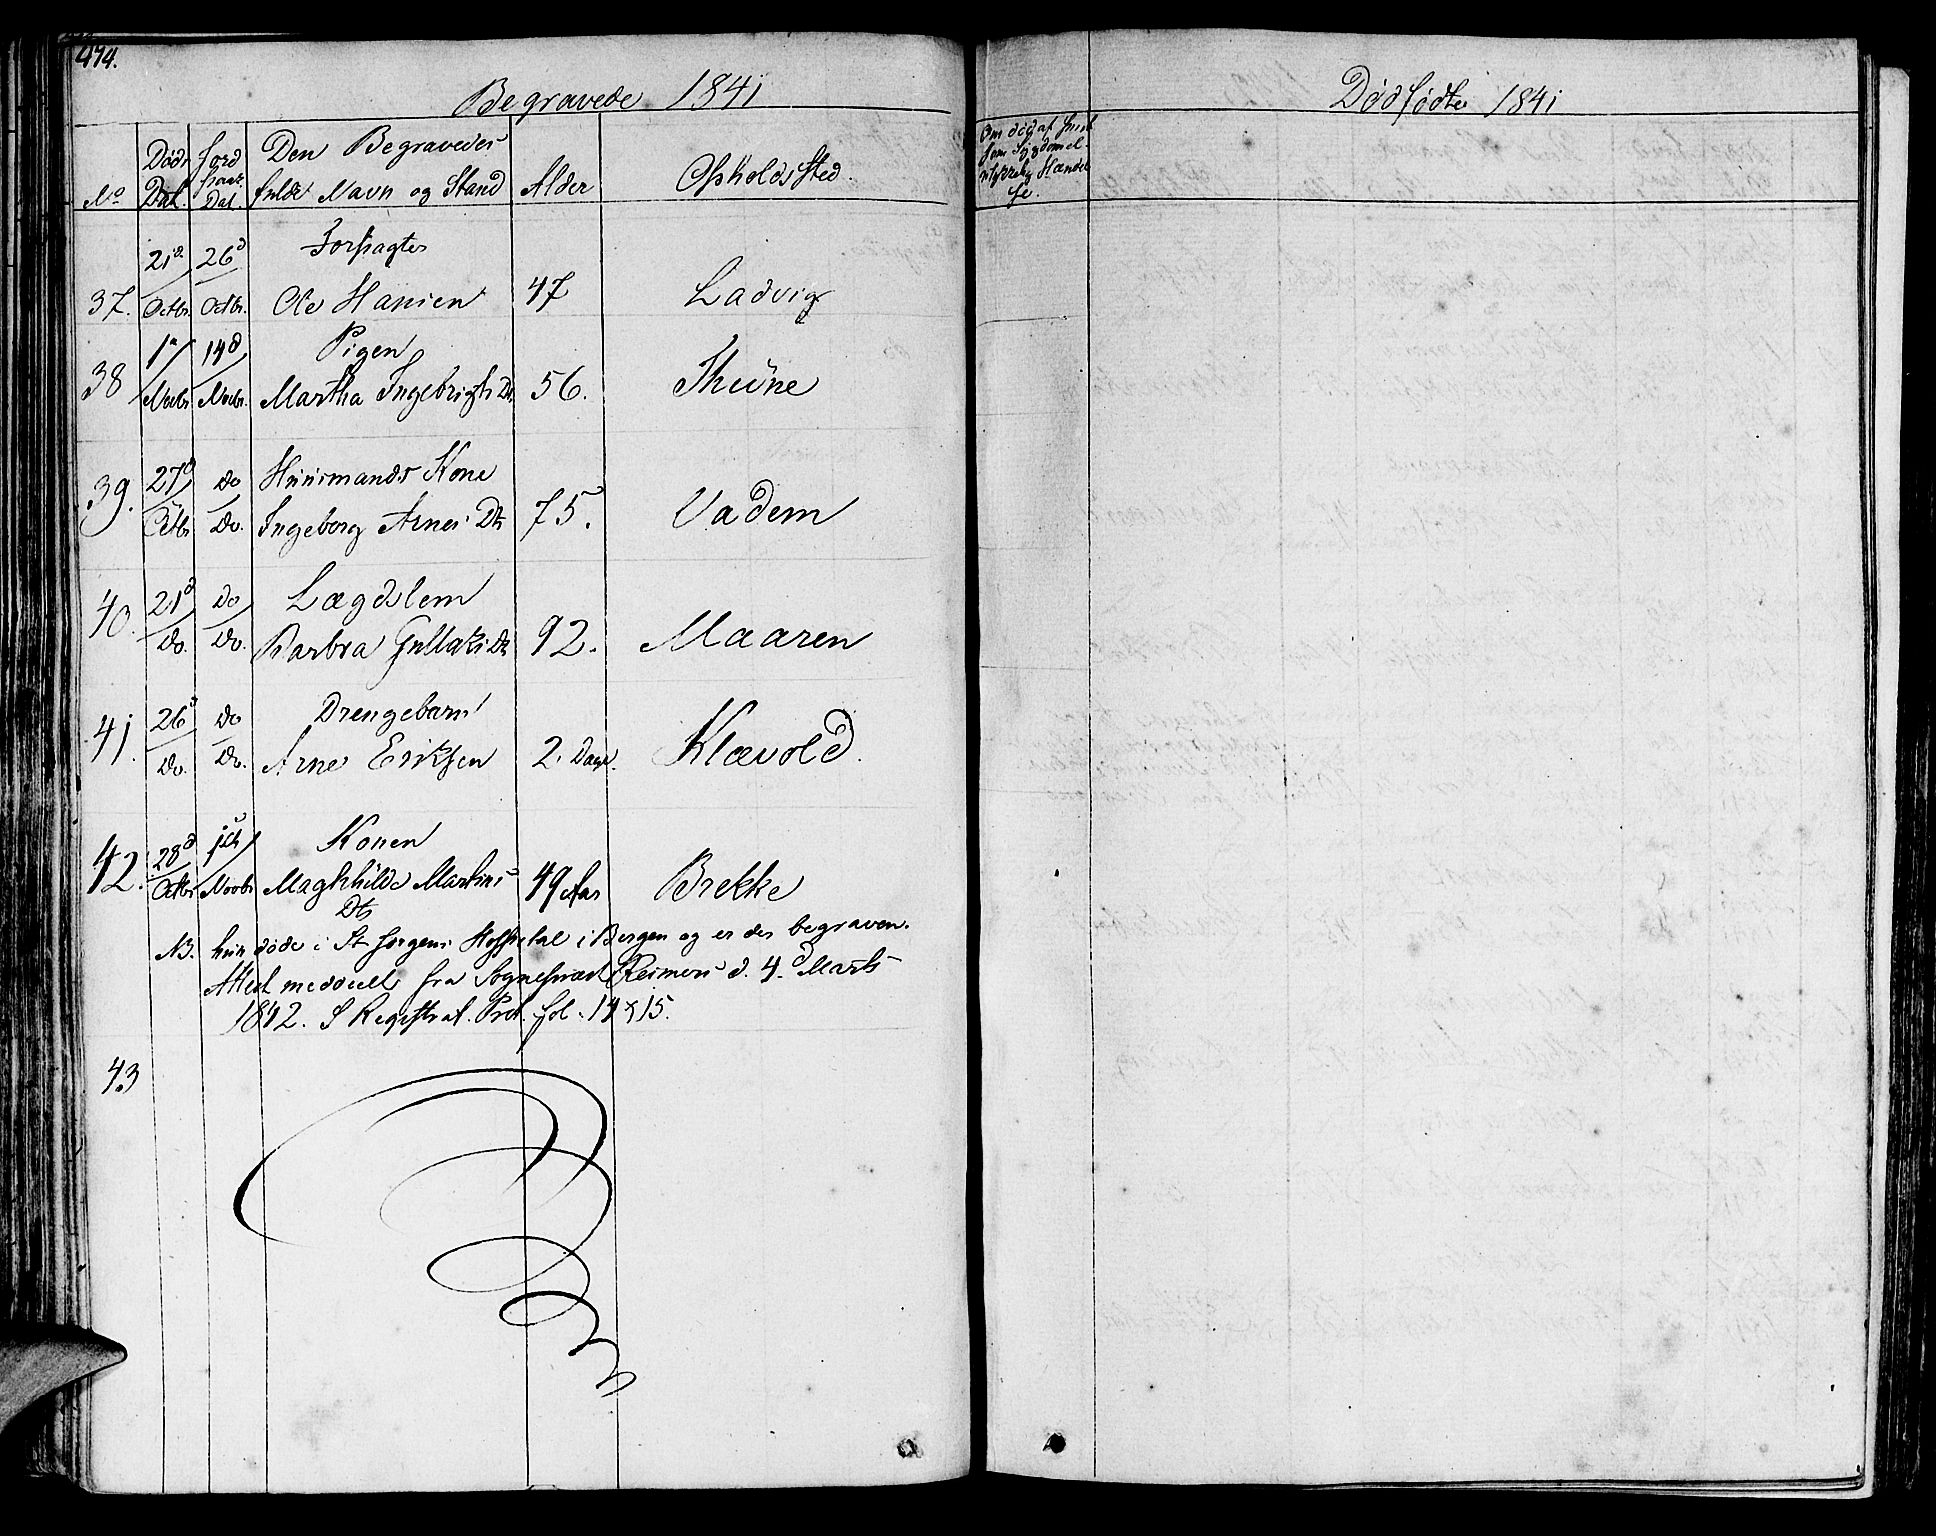 494.
Begravede 1841
No
Døds Dat.
Jord paak. Dat.
Den Begravedes
fulde Navn og Stand
Alder
Opholds Sted.
21d Octbr. 26d Octbr. Forpagter
37. Ole Hansen 47 Ladvig
1ste Novbr. 14d Novbr. Pigen
38 Martha Ingebrigts Dtr 56. Thüne
27d Octbr. do Do. Huusmands Kone
39. Ingeborg Arnes Dtr 75. Vadem
21d Do. do Do. Lægdslem
40. Barbra Gullaks Dtr 92. Maaren
26d Do. do Do. Drengebarn
41. Arne Eriksen 2. Dage. Klævold.
28d Octbr Novbr Konen
42. Maghhilde Martins Dtr 49 Aar Brekke
NB. hun døde i St Jørgens Hospital i Bergen og er der begraven.
Attest meddeelt fra Sognepræst Reimers d. 4.d Marts
1842. S Registrat. Prot. fol. 14 & 15.
43
Dødfødte 1841
Om død af smit
som Sygdom el-
ulykkelig Hændel
se.